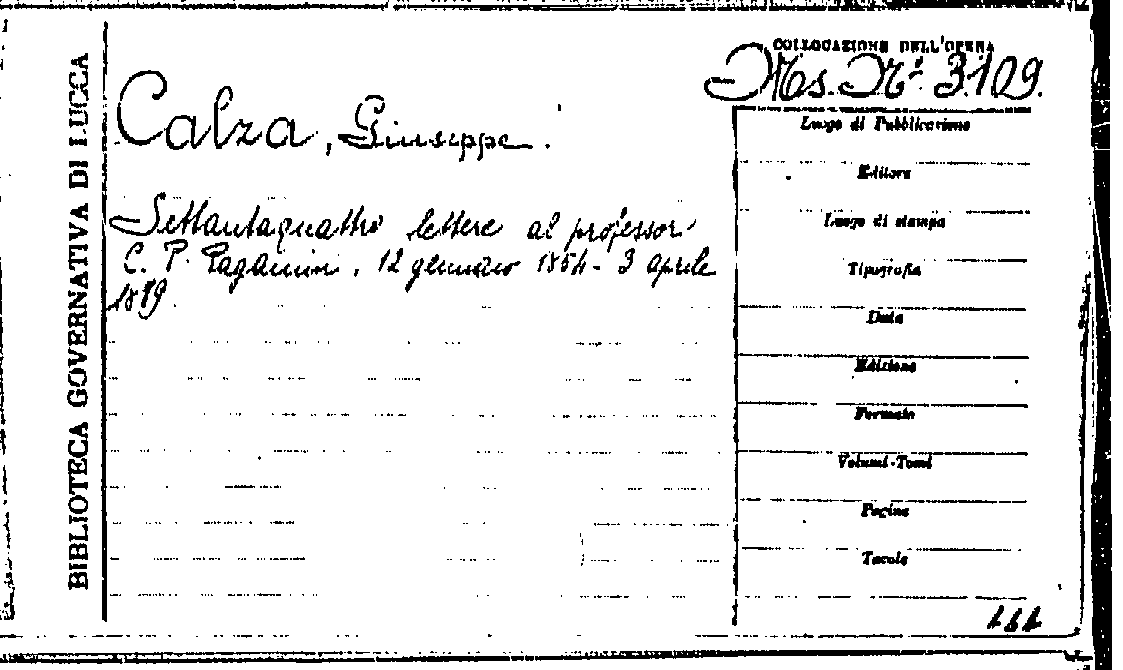 BIBLIOTECA GOVERNATIVA DI LUCCA
COLLOCAZIONE DELL'OPERA
Ms. N.º 3109.
Calza, Giuseppe.
Settantaquattro lettere al professor
C. P. Paganini, 12 gennaio 1854 - 3 aprile
Luogo di Pubblicazione
Editore
Luogo di stampa
Tipografia
Data
Edizione
Formato
Volumi-Tomi
Pagine
Tavole